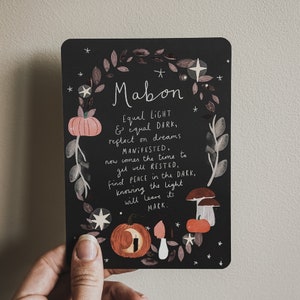 Mabon
Equal LIGHT
& equal DARK,
reflect on dreams
MANIFESTED,
now comes the time to
get well RESTED.
Find PEACE in the DARK,
knowing the light
will leave its
MARK.